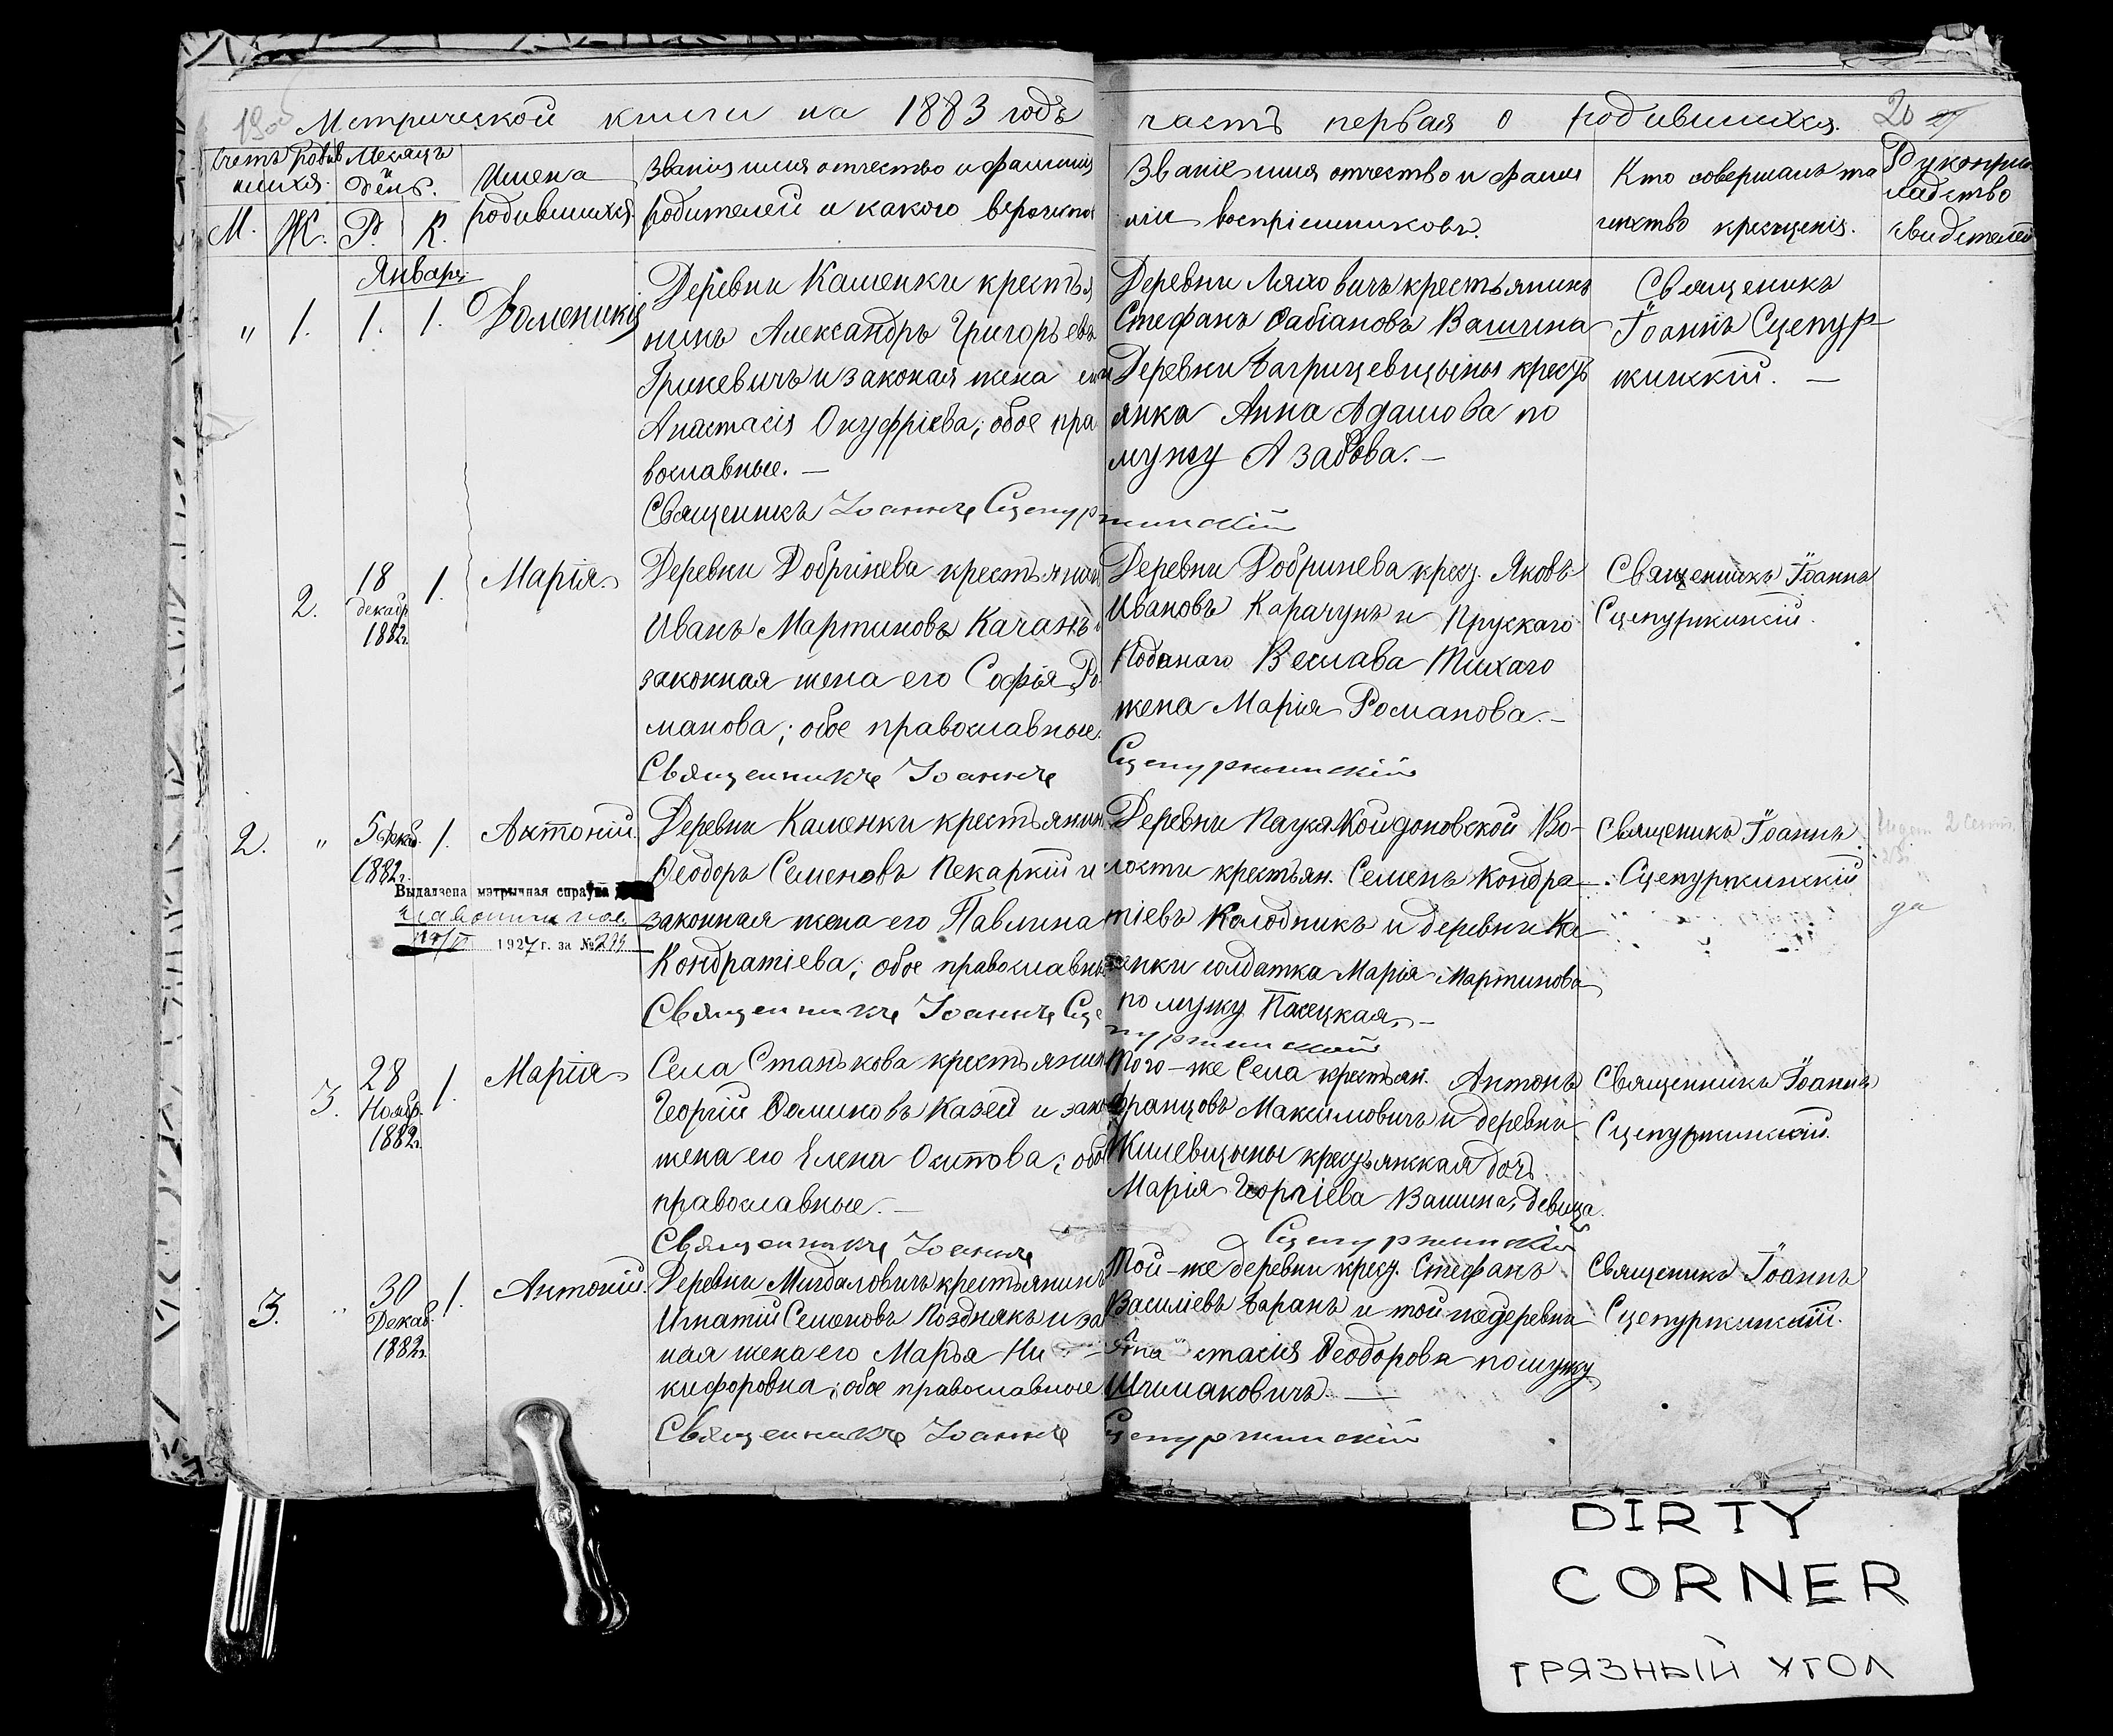 Метрической книги на 1883 годъ часть первая о родившихся. 20
Счетъ родив
шихся.
Месяцъ
и
день.
Имена
родившихся.
Званія имя отчество и фамилія
родителей и какого вероиспо
Званіе имя отчество и фами
ліи воспріемниковъ.
Кто совершалъ та
инство крещенія.
Рукопри
кладство
свидетелей
М. Ж. Р. К.
Январь
" 1. 1. 1. Доменикія
Деревни Каменки крестья
нинъ Александръ Григорьевъ
Грикевичъ и законая жена его
Анастасія Онуфріева; обое пра
вославные. —
Священикъ Іоаннъ Сцепуржинскій
Деревни Ляховичъ крестьянинъ
Стефанъ Фабіановъ Вашина
Деревни Багрицевицыны кресть
янка Анна Адамова по
мужу Азабова. —
Священикъ
Іоаннъ Сцепур-
жинскій. —
2. 18 декабр 1882г. 1. Марія
Деревни Добринева крестьянинъ
Иванъ Мартиновъ Качанъ и
законная жена его Софья Ро-
манова; обое православные.
Священникъ Іоаннъ Сцепуржинскій
Деревни Добринева крест. Яковъ
Ивановъ Карачунъ и Прускаго
Поданаго Веслава Тихаго
жена Марія Романова. —
Священикъ Іоаннъ
Сцепуржинскій.
2. " 5 декаб. 1882г. 1. Антоній
Выдадзена мэтрычная спраўка
1927 г. за №
Деревни Каменки крестьянин.
Феодоръ Семеновъ Пекаркій и
законная жена его Павлина
Кондратіева; обое православны
Священникъ Іоаннъ Сцепуржинскій
Деревни Паука Койдановской Во-
лости крестьян. Семенъ Кондра-
тіевъ Колодникъ и деревни Ка
менки солдатка Марія Мартинова
по мужу Пасецкая. —
Священикъ Іоаннъ
Сцепуржинскій
да
3. 28 Ноябр. 1882г. 1. Марія
Села Станькова крестьянин
Георгій Фоминовъ Казей и зако
жена его Елена Осипова; обое
православные. —
Священникъ Іоаннъ Сцепуржинскій
Того-же Села крестьян. Антонъ
Францовъ Максимовичъ и деревни
Жилевицыны крестьянская дочь
Марія Георгіева Вашина, девица.
Священникъ Іоаннъ
Сцепуржинскій.
3. " 30 Декаб. 1882г. 1. Антоній.
Деревни Мигдаловичъ крестьянинъ
Игнатій Семеновъ Позднякъ и за
ная жена его Марья Ни
кифоровна; обое православные
Священникъ Іоаннъ Сцепуржинскій
Той-же деревни крест. Стефанъ
Василіевъ Баранъ и той же деревни
Анастасія Феодорова по мужу
Шимаковичъ. —
Священикъ Іоаннъ
Сцепуржинскій.
DIRTY
CORNER
ГРЯЗНЫЙ УГОЛ